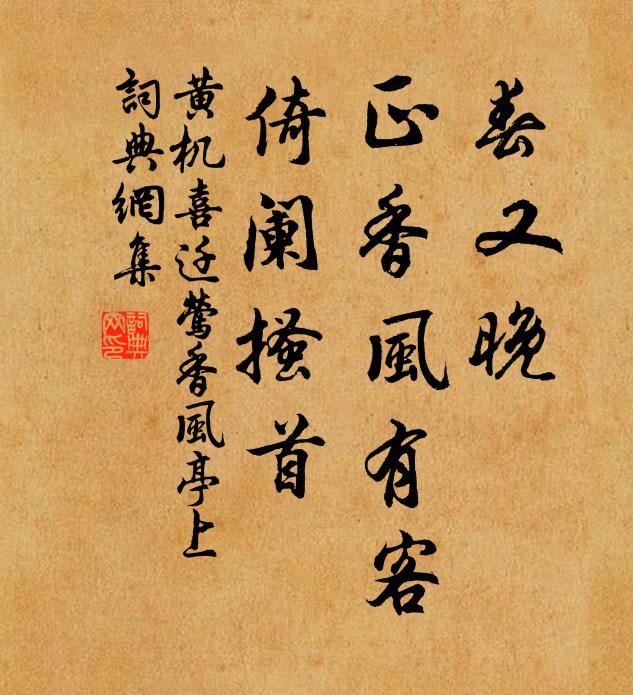 春又晚
正香風有客
倚阑搔首
黄机喜迁鶯香風亭上
詞典網集
詞典網印